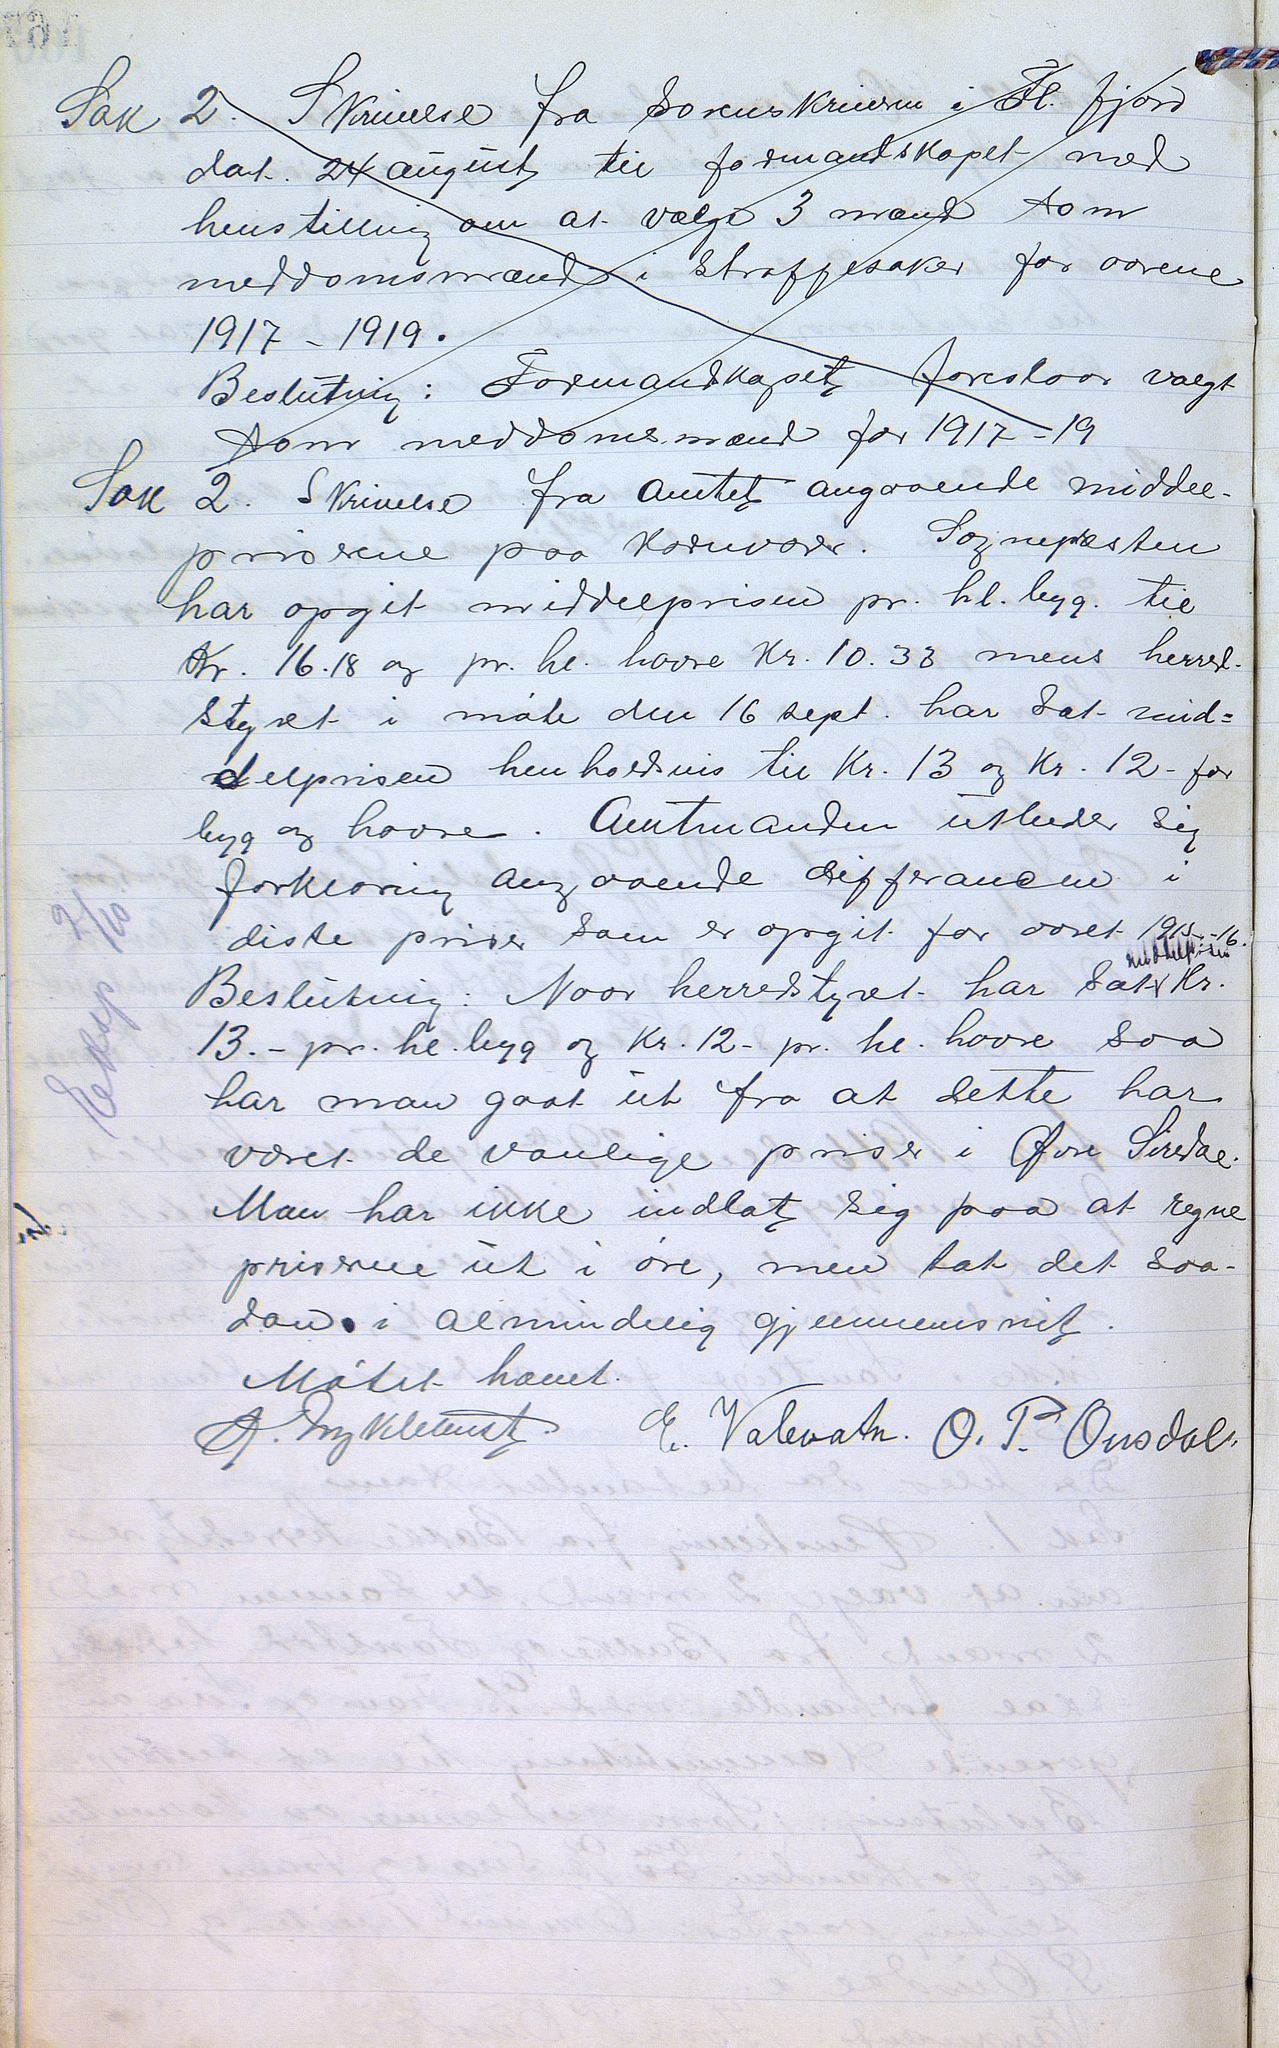 Sak 2. Skrivelse fra Sorenskriveren i Fl. fjord
dat. 24 august til formandskapet med
henstilling om at vælge 3 mænd som
meddomsmænd i straffesaker for aarene
1917 - 1919.
Beslutning: Formandskapet foreslaar valgt
som meddomsmænd for 1917-19
Sak 2. Skrivelse fra Amtet angaaende middel-
priserne paa kornvarer. Sognepresten
har opgit middelprisen pr. hl. byg. til
Kr. 16.18 og pr. hl. havre Kr. 10.33 mens herred-
styret i møte den 16 sept. har sat mid=
delprisen henholdsvis til Kr. 13 og Kr. 12- for
byg og havre. Amtmanden utbeder sig
forklaring angaaende differancen i
disse priser som er opgit for aaret 1915-16.
middelprisen
Beslutning: Naar herredstyret har sat Kr.
13.- pr. hl. byg og Kr. 12- pr. hl. havre saa
har man gaat ut fra at dette har
været de vanlige priser i Øvre Siredal.
Man har ikke indlat sig paa at regne
priserne ut i øre, men tat det saa-
dan i almindelig gjennemsnit.
Møtet hævet.
E. Valevatn. O. P. Ousdal.
Eksp 2/10